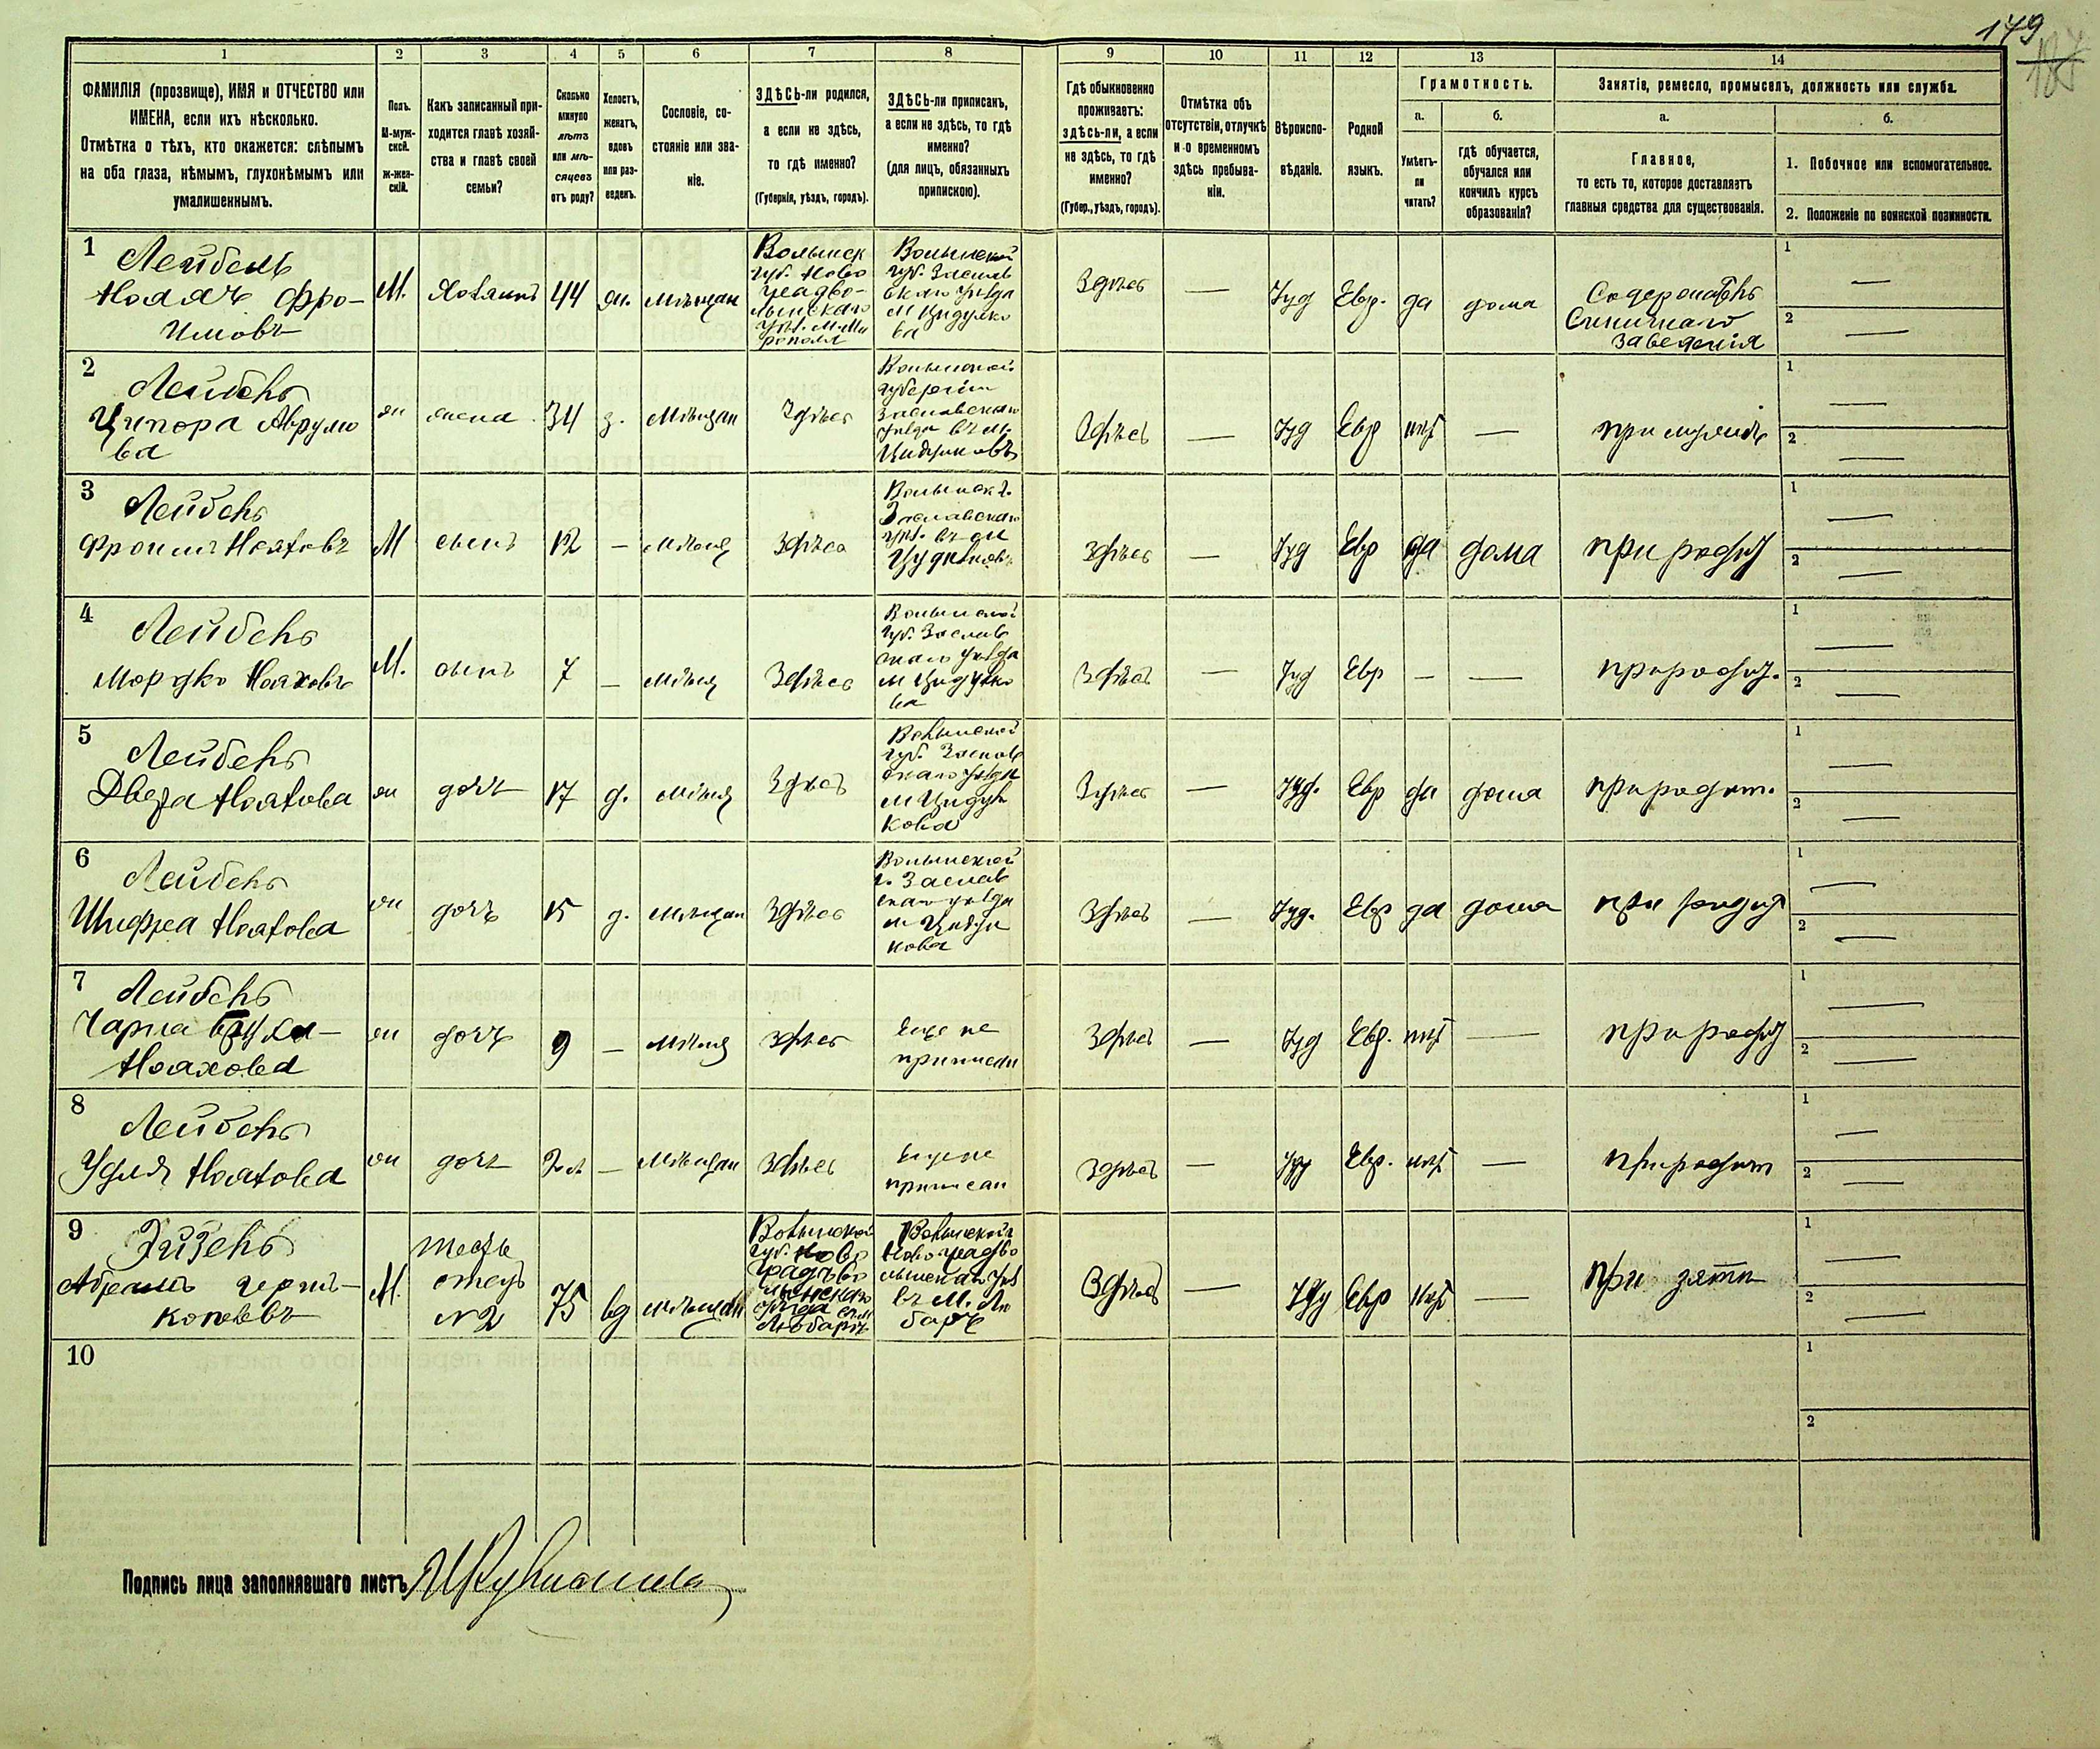 179
187
1
2
3
4
5
6
7
8
9
10
11
12
13
14
ФАМИЛІЯ (прозвище), ИМЯ и ОТЧЕСТВО или
ИМЕНА, если ихъ нѣсколько.
Отмѣтка о тѣхъ, кто окажется: слѣпымъ
на оба глаза, нѣмымъ, глухонѣмымъ или
умалишеннымъ.
Полъ.
М-муж-
ской.
ж-жен-
скій.
Какъ записанный при-
ходится главѣ хозяй-
ства и главѣ своей
семьи?
Сколько
минуло
лѣтъ
или мѣ-
сяцевъ
отъ роду?
Холостъ,
женатъ,
вдовъ
или раз-
веденъ.
Сословіе, со-
стояніе или зва-
ніе.
ЗДѢСЬ-ли родился,
а если не здѣсь,
то гдѣ именно?
(Губернія, уѣздъ, городъ).
ЗДѢСЬ-ли приписанъ,
а если не здѣсь, то гдѣ
именно?
(для лицъ, обязанныхъ
припискою).
Гдѣ обыкновенно
проживаетъ:
здѣсь-ли, а если
не здѣсь, то гдѣ
именно?
(Губер., уѣздъ, городъ).
Отмѣтка объ
отсутствіи, отлучкѣ
и о временномъ
здѣсь пребыва-
ніи.
Вѣроиспо-
вѣданіе.
Родной
языкъ.
Грамотность.
а.
Умѣетъ-
ли
читать?
б.
гдѣ обучается,
обучался или
кончилъ курсъ
образованія?
Занятіе, ремесло, промыселъ, должность или служба.
а.
Главное,
то есть то, которое доставляетъ
главныя средства для существованія.
б.
1. Побочное или вспомогательное.
2. Положеніе по воинской повинности.
1
Лейбель
Ноахъ Фро-
имовъ
М.
Хозяинъ
44
ж.
мѣщан
Волынск
губ. Ново
градво-
лынскаго
уѣз. м. Ми
рополя
Волынской
губ. Заслав
скаго уѣзда
м Цидулко
ва
Здѣсь
—
Iуд
Евр.
да
дома
Содержатель
заведенія
1 —
2 —
2
Лейбель
Ципора Аврумо
ва
ж
жена
34
з.
мѣщан
Здѣсь
Волынской
губернiи
Заславскаго
уѣзда въ м.
Здѣсь
—
Iуд
Евр
нѣт
—
при мужѣ
1 —
2 —
3
Лейбель
Фроимъ Ноаховъ
М
сынъ
12
—
мѣщ
Здѣсь
Волынск г.
Заславскаго
Здѣсь
—
Iуд
Евр
да
дома
при родит
1 —
2 —
4
Лейбель
Мордко Ноаховъ
М.
сынъ
7
—
мѣщ
Здѣсь
Волынской
губ. Заслав
скаго уѣзда
м Цидулко
ва
Здѣсь
—
Iуд
Евр
—
—
при родит.
1 —
2 —
5
Лейбель
Двера Ноахова
ж
дочь
17
д.
мѣщ
Здѣсь
Волынской
губ. Заслав
скаго уѣзда
м Цидул
кова
Здѣсь
—
Iуд.
Евр
да
дома
при родит.
1 —
2 —
6
Лейбель
Шифра Ноахова
ж
дочь
15
д.
мѣщан
Здѣсь
Волынской
г. Заслав
скаго уѣзда
м Цидул
кова
Здѣсь
—
Iуд.
Евр
да
дома
при родит
1 —
2 —
7
Лейбель
Чарна
Ноахова
ж
дочь
9
—
мѣщ
Здѣсь
Еще не
приписан
Здѣсь
—
Iуд
Евр.
нѣт
—
при родит
1 —
2 —
8
Лейбель
Удля Ноахова
ж
дочь
—
мѣщан
Здѣсь
Еще не
приписан
Здѣсь
—
Iуд
Евр.
нѣт
—
при родит
1 —
2 —
9
Абрамъ
М.
тесть
отецъ
№ 2
75
вд
мѣщан
Волынской
губ. Ново
градъво
лынскаго
уѣзда
Любаръ
Волынской
Новоградво
лынскаго уѣз
въ м. Лю
барѣ
Здѣсь
—
Iуд
Евр
нѣт
—
при зятѣ
1 —
2 —
10
1
2
Подпись лица заполнявшаго листъ